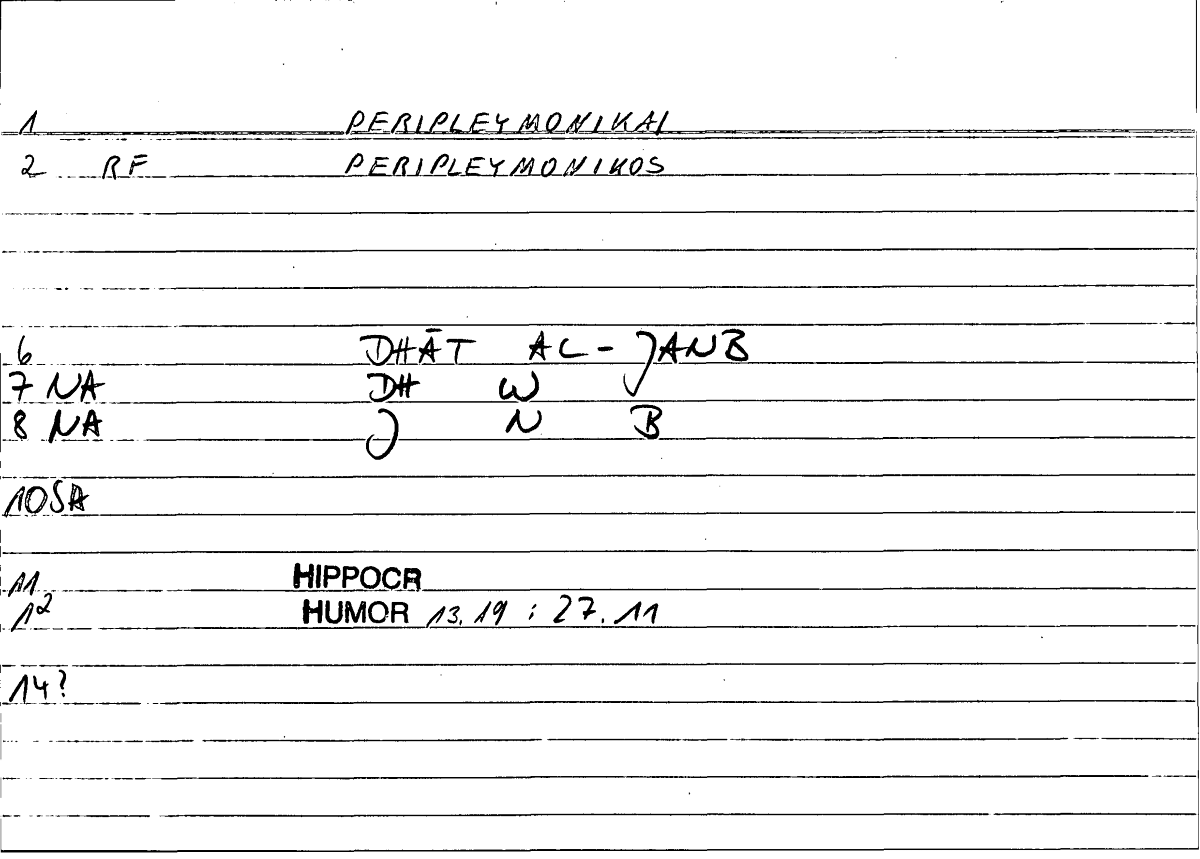 1 PERIPLEYMONIKAI
2 RF PERIPLEYMONIKOS
6 DHĀT AL-JANB
7 NA DH W
8 NA J N B
10SA
11 HIPPOCR
12 HUMOR 13.19 : 27.11
14?